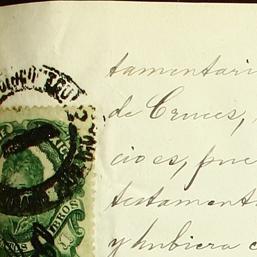 tamentari
de Cruces,
cio es, pue
testament
y hubiera c